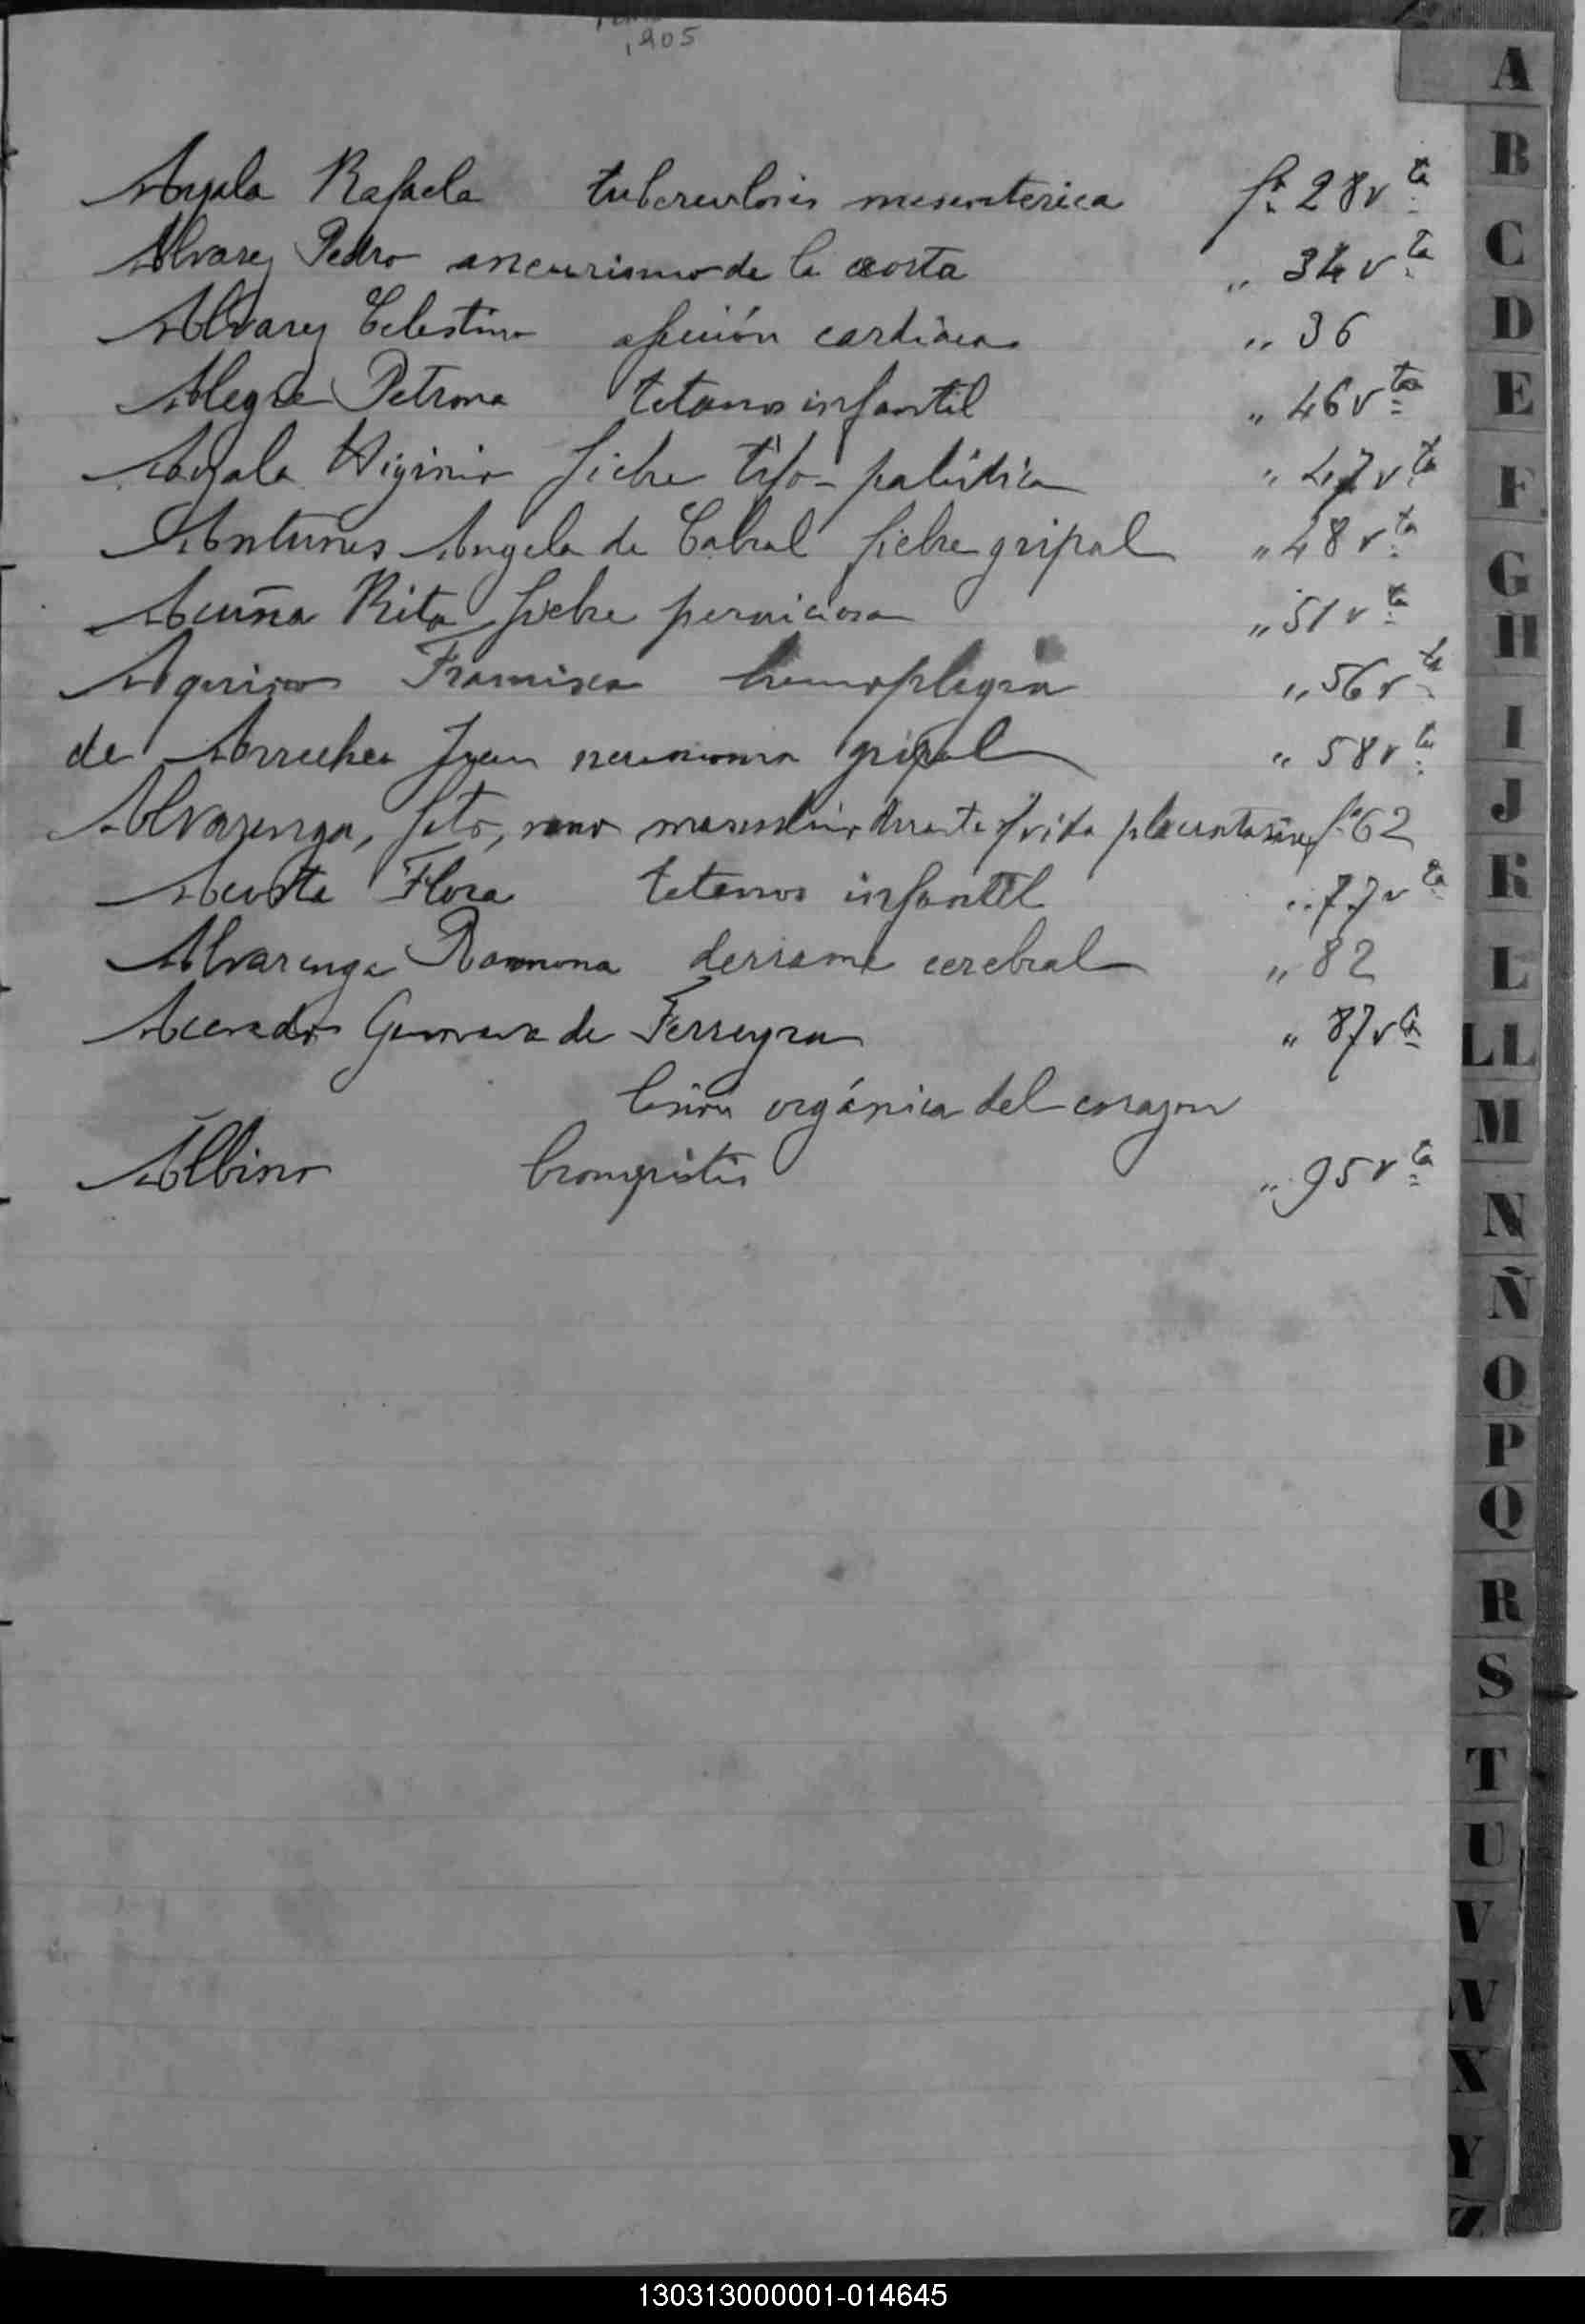 1905
Ayala Rafaela tuberculosis mesenterica fs. 28 vta
Alvarez Pedro aneurismo de la aorta " 34 vta
Alvarez Celestino afección cardiaca " 36
Alegre Petrona tetanos infantil " 46 vta
Ayala Higinio fiebre tifo-palúdica " 47 vta
Antunes Angela de Cabral fiebre gripal " 48 vta
Acuña Rita fiebre perniciosa " 51 vta
Francisca hemoplegia " 56 vta
de Arrechea Juan neumonia gripal " 58 vta
Alvarenga, feto, sexo masculino durante vida placentaria fs 62
Acosta Flora tetanos infantil " 77 vta
Alvarenga Ramona derrame cerebral " 82
Acevedo Genoveva de Ferreyra " 87 vta
lesión orgánica del corazon
Albino bronquitis " 95 vta
A
B
C
D
E
F
G
H
I
J
K
L
LL
M
N
Ñ
O
P
Q
R
S
T
U
V
W
X
Y
Z
130313000001-014645